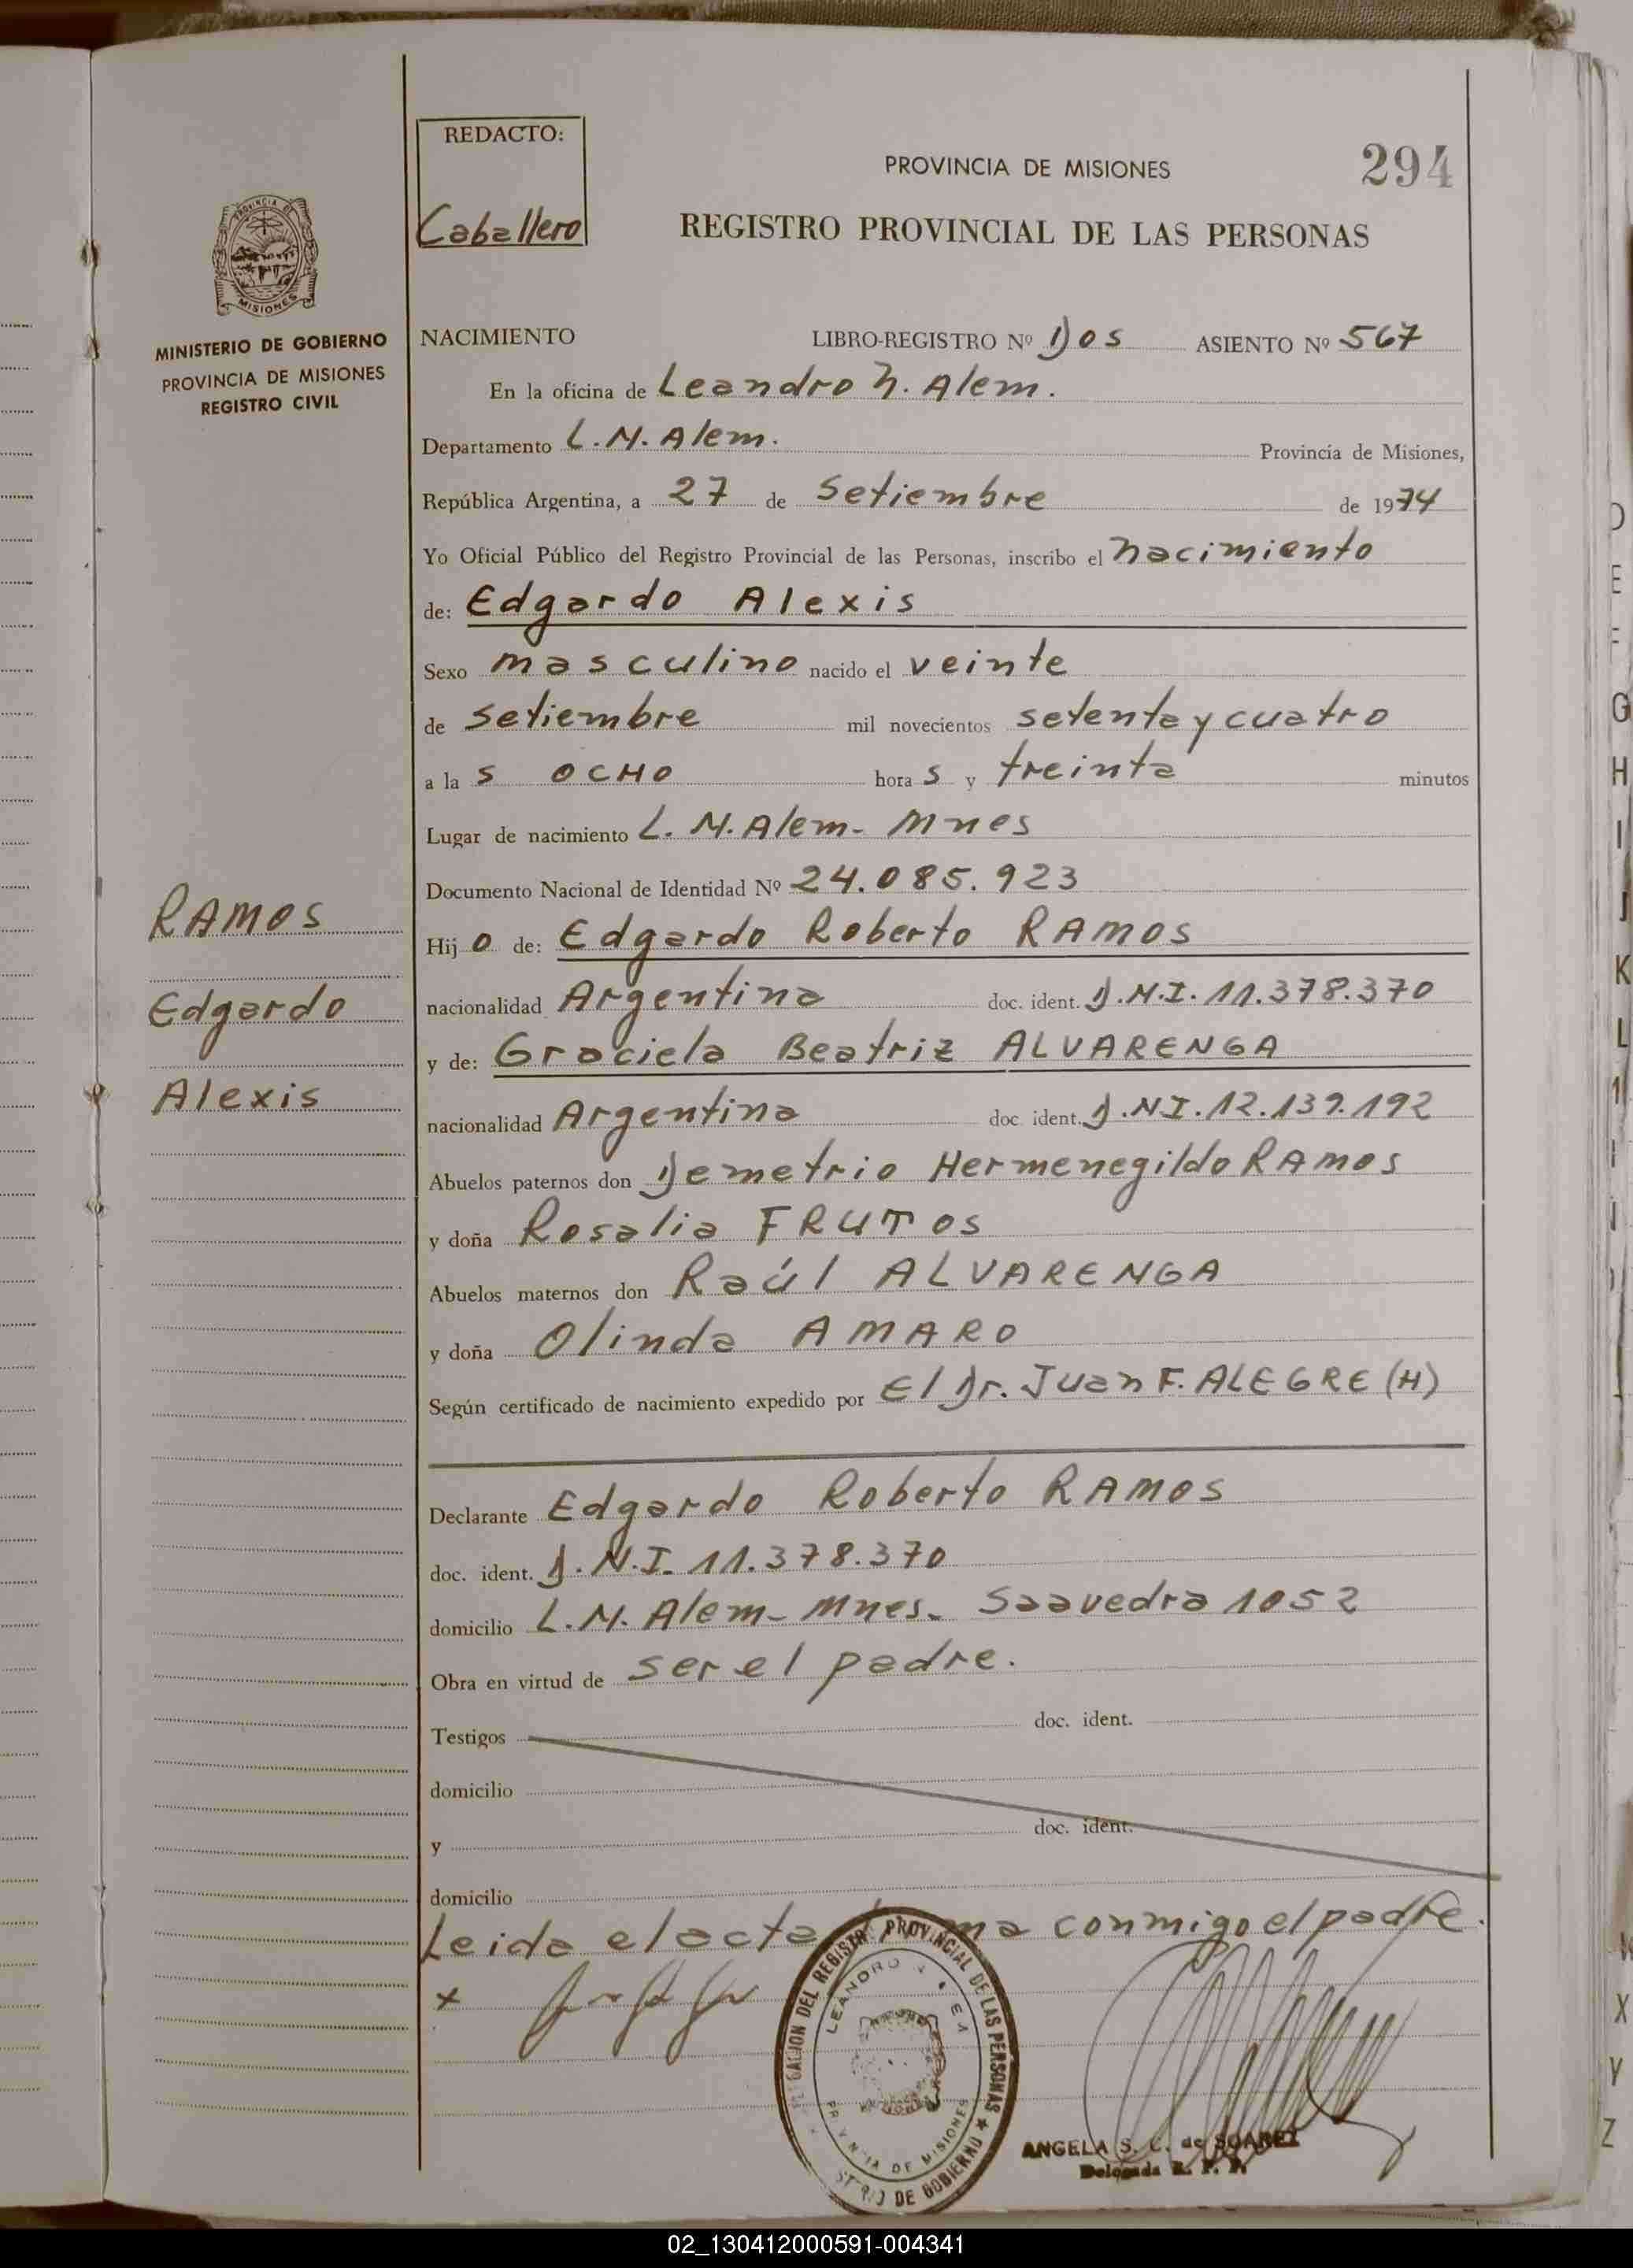 REDACTO:
Caballero
PROVINCIA DE MISIONES
294
REGISTRO PROVINCIAL DE LAS PERSONAS
PROVINCIA DE
MISIONES
MINISTERIO DE GOBIERNO
PROVINCIA DE MISIONES
REGISTRO CIVIL
NACIMIENTO LIBRO-REGISTRO Nº Dos ASIENTO Nº 567
En la oficina de Leandro N. Alem.
Departamento L.N. Alem. Provincia de Misiones,
República Argentina, a 27 de Setiembre de 1974
Yo Oficial Público del Registro Provincial de las Personas, inscribo el nacimiento
de: Edgardo Alexis
Sexo masculino nacido el veinte
de setiembre mil novecientos setenta y cuatro
a la s OCHO hora s y treinta minutos
Lugar de nacimiento L. N. Alem- Mnes
Documento Nacional de Identidad Nº 24.085.923
Hij o de: Edgardo Roberto RAMOS
nacionalidad Argentina doc. ident. D.N.I. 11.378.370
y de: Graciela Beatriz ALVARENGA
nacionalidad Argentina doc. ident. D.N.I. 12.139.192
Abuelos paternos don Demetrio Hermenegildo RAMOS
y doña Rosalia FRUTOS
Abuelos maternos don Raúl ALVARENGA
y doña Olinda AMARO
Según certificado de nacimiento expedido por El Dr. Juan F. ALEGRE (H)
RAMOS
Edgardo
Alexis
Declarante Edgardo Roberto RAMOS
doc. ident. D.N.I. 11.378.370
domicilio L.N. Alem- Mnes. Saavedra 1052
Obra en virtud de ser el padre.
Testigos doc. ident.
domicilio
y doc. ident.
domicilio
Leida el acta conmigo el padre.
x
DEL REGISTRO PROVINCIAL DE LAS PERSONAS
LEANDRO
DE MISIONES
DE GOBIERNO
ANGELA S. C. de SOAREZ
Delegada R. P. P.
D
E
F
G
H
I
J
K
L
X
Y
Z
02_130412000591-004341